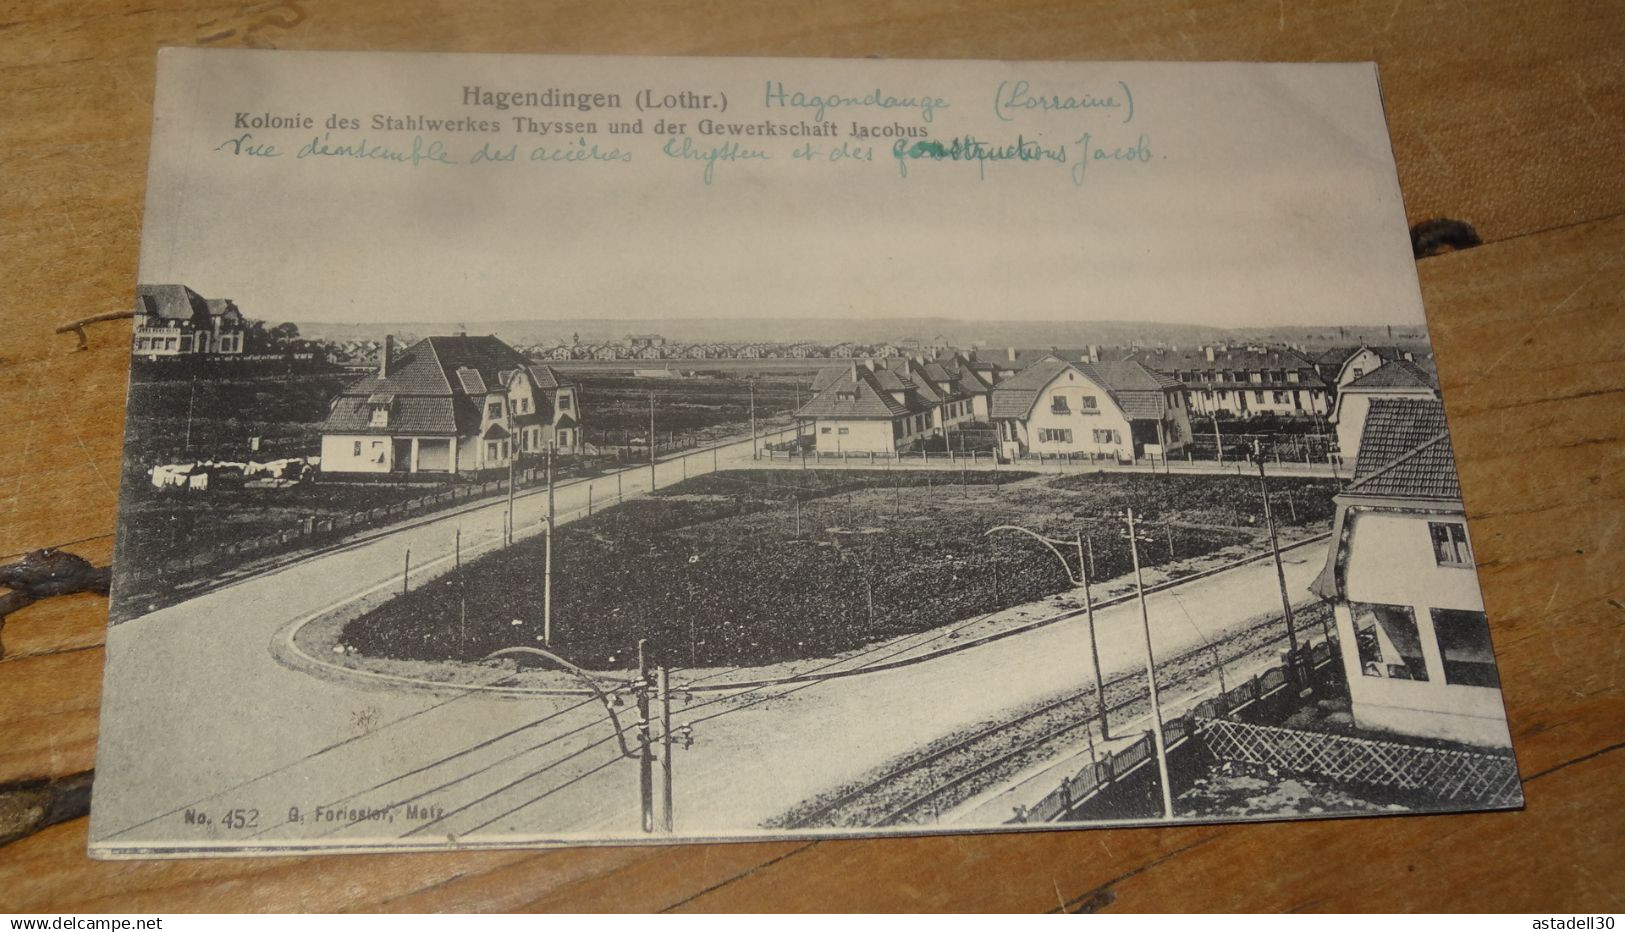 Hagendingen (Lothr.) Hagondange (Lorraine)
Kolonie des Stahlwerkes Thyssen und der Gewerkschaft Jacobus
Vue d'ensemble des aciéries Thyssen et des constructions Jacob.
No. 452 G. Forissier, Metz
www.delcampe.net
astadell30